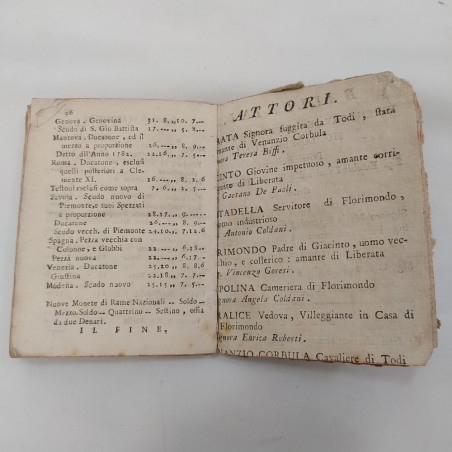 26
Genova. Genovina 31. 8.,,10. 7.—
Scudo di S. Gio Battista 17.—,, 5. 8.—
Mantova. Ducatone, ed il
mezzo a proporzione —.—,, 9. 8.—
Detto dell'Anno 1781. 22.16.,, 7. 5.—
Roma. Ducatone, esclusi
quelli posteriori a Cle-
mente XI. 26.—,, 8. 2. 6
Testoni esclusi come sopra 7. 6.,, 2. 5.—
Savoia. Scudo nuovo di
Piemonte, e suoi Spezzati
a proporzione 28.17.,, 9.—.—
Ducatone 26.—,, 8. 8.—
Scudo vecch. di Piemonte 24.10.,, 7.12. 6
Spagna. Pezza vecchia con
Colonne, e Globbi 22.—,, 6.18.—
Pezza nuova 22.—,, 6.17.—
Venezia. Ducatone 25.10,, 8, 8,6
Giustina 25.18
Modena. Scudo nuovo 15.15,, 5.—.—
Nuove Monete di Rame Nazionali. Soldo—
Mezzo Soldo— Quattrino— Sestino, ossia
da due Denari.
IL FINE,
ATTORI.
RATA Signora fuggita da Todi, stata
amante di Venanzio Corbula
Teresa Biffi.
CINTO Giovine impetuoso, amante corri-
di Liberata
Gaetano De Paoli.
TADELLA Servitore di Florimondo,
omo industrioso
Antonio Coldani.
RIMONDO Padre di Giacinto, uomo vec-
chio, e collerico: amante di Liberata
Vincenzo Goresi.
POLINA Cameriera di Florimondo
gnora Angela Coldani.
RALICE Vedova, Villeggiante in Casa di
Florimondo
gnora Enrica Roberti.
NANZIO CORBULA Cavaliere di Todi